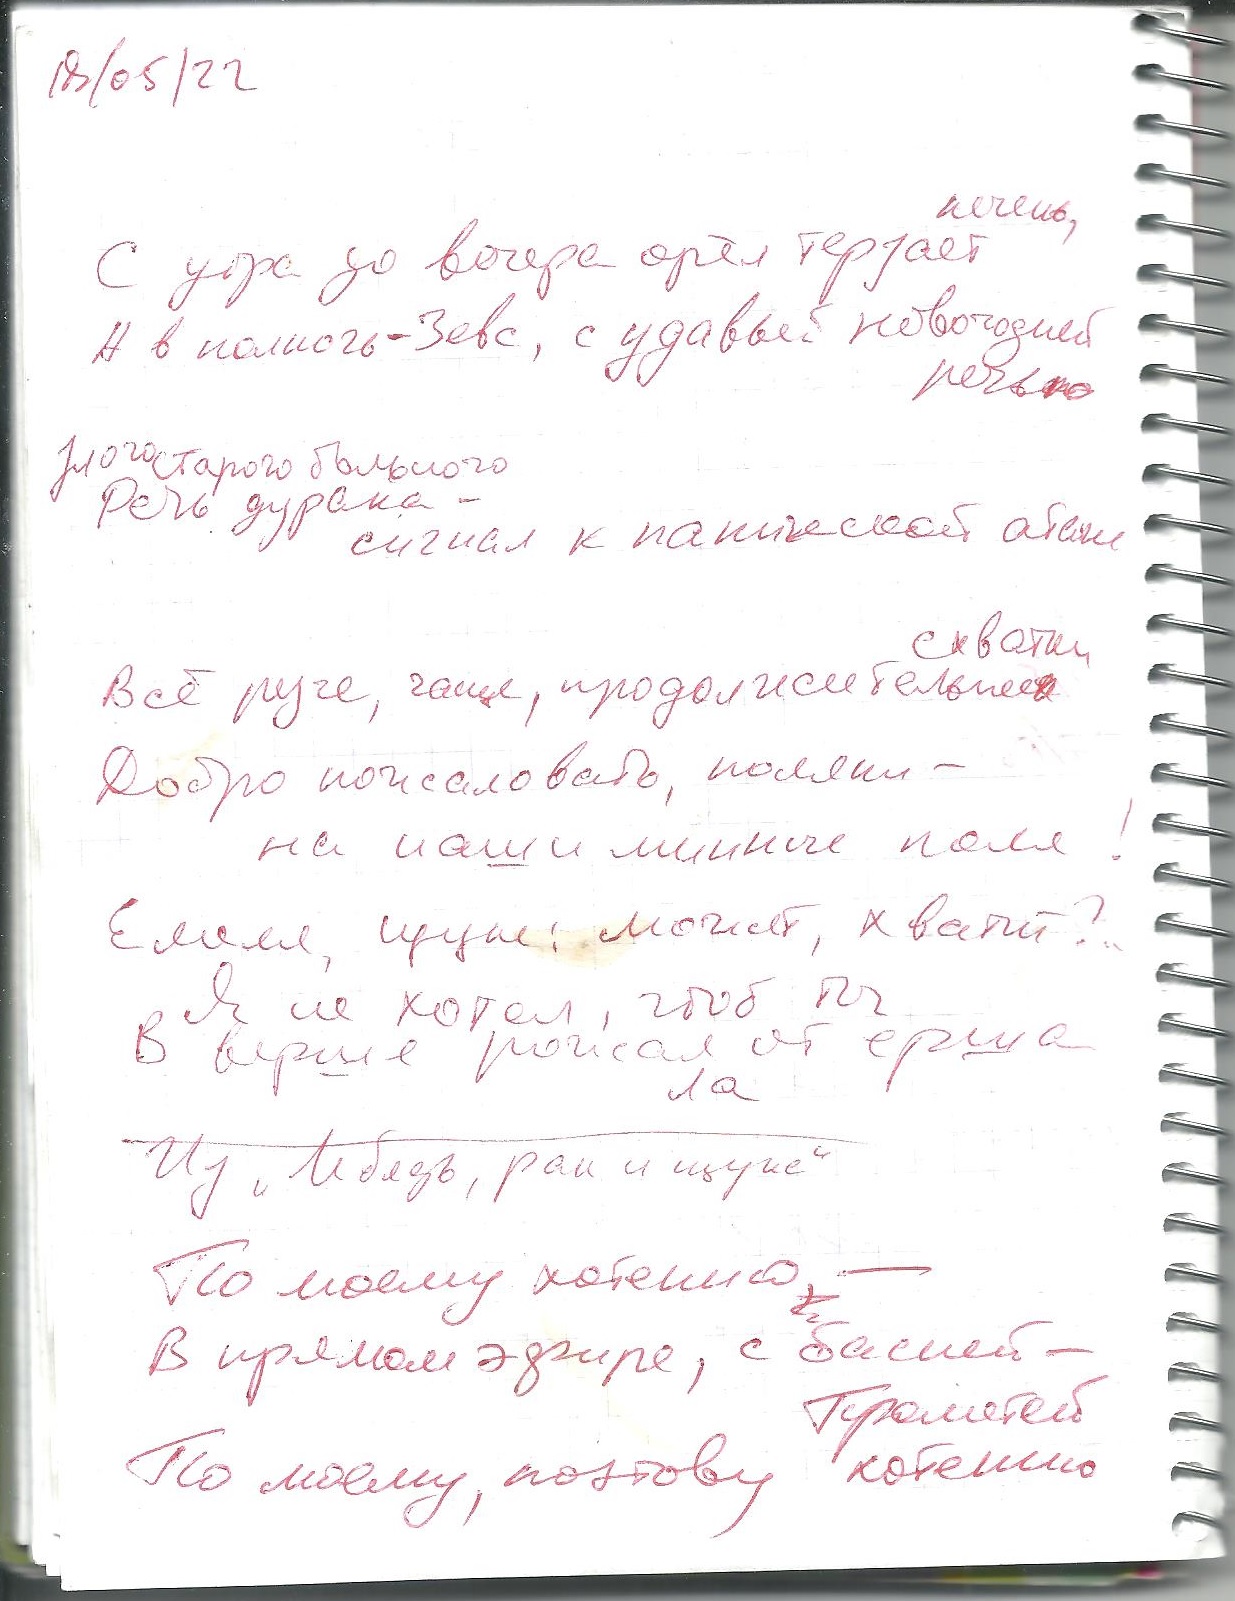 18/05/22
печень,
С утра до вечера орёл терзает
А в полночь - Зевс, с удавьей новогодней
речью
злого старого больного
Речь дурака -
сигнал к панической атаке
схватки
Всё реже, чаще, продолжительнее
Добро пожаловать, поляки -
на наши минные поля!
Емеля, щуке: может, хватит?
Я не хотел, чтоб ты
В верше рожал от ерша
ла
Из "Лебедь, рак и щука"
По моему хотению, —
В прямом эфире, с басней —
Прометей
По моему, поэтову хотению